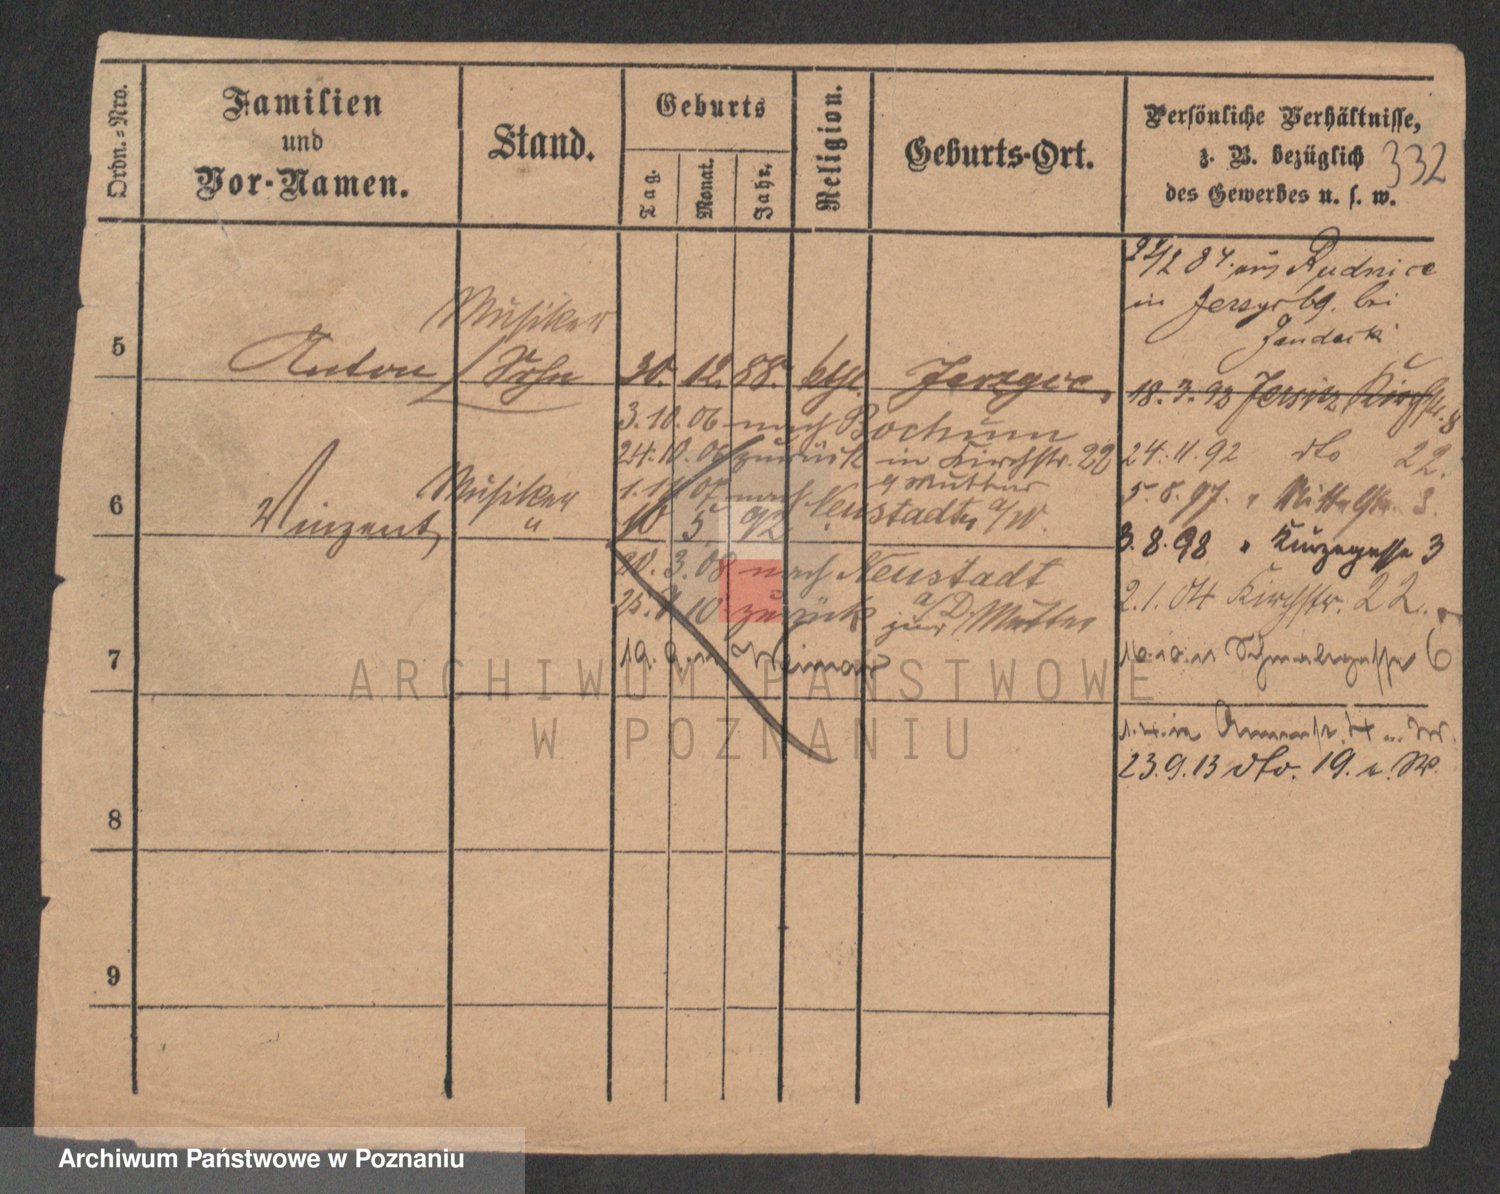 Ordn.=Nro.
Familien
und
Vor-Namen.
Stand.
Geburts
Tag.
Monat.
Jahr.
Religion.
Geburts-Ort.
Persönliche Verhältnisse,
z. B. bezüglich
des Gewerbes u. s. w.
332
84. aus Rudnice
in bei
5
Anton
Musiker
Sohn
30. 12. 88. kth.
18. 3. 92 Jersitz Kirchstr.
3.10.06 nach Bochum
24.10.06 zurück in Kirchstr. 22
24.11.92 dto 22.
07 nach Neustadt a/W.
z Mutter
5.8.97. " 3.
6
Vinzent
Musiker
"
10 5 92
3.8.98 " Kurzegasse 3
20.3.08 nach Neustadt
2.1.04 Kirchstr. 22.
10 zurück zur Mutter
7
19. 9. Weimar
6
23.9.13 dto. 19.
8
9
ARCHIWUM PAŃSTWOWE
W POZNANIU
Archiwum Państwowe w Poznaniu